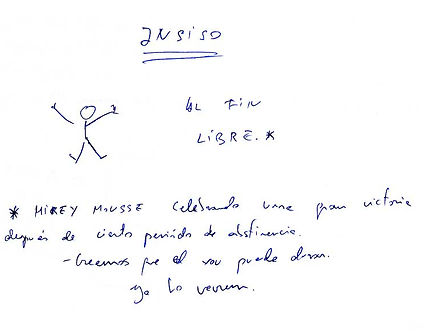 INSISO
AL FIN
LIBRE.*
* MIKEY MOUSSE celebrando una gran victoria
después de cierto periódo de abstinencia.
- Creemos que el puede durar.
ya lo veremos.